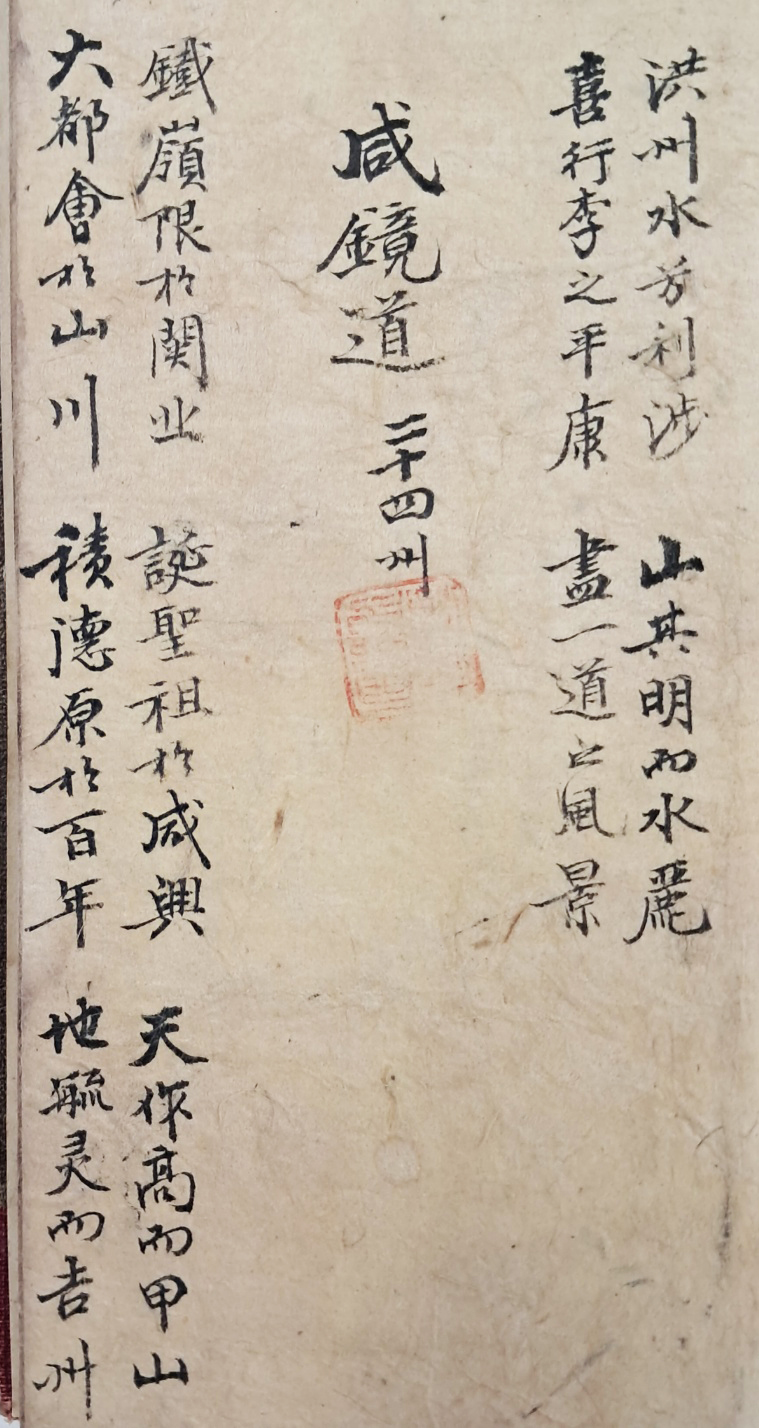 洪州水芳利涉 山其明而水麗
喜行李之平康 盡一道之風景
咸鏡道 二十四州
鐵嶺限於関北 誕聖祖於咸興 天作高而甲山
大都會於山川 積德原於百年 地毓灵而吉州